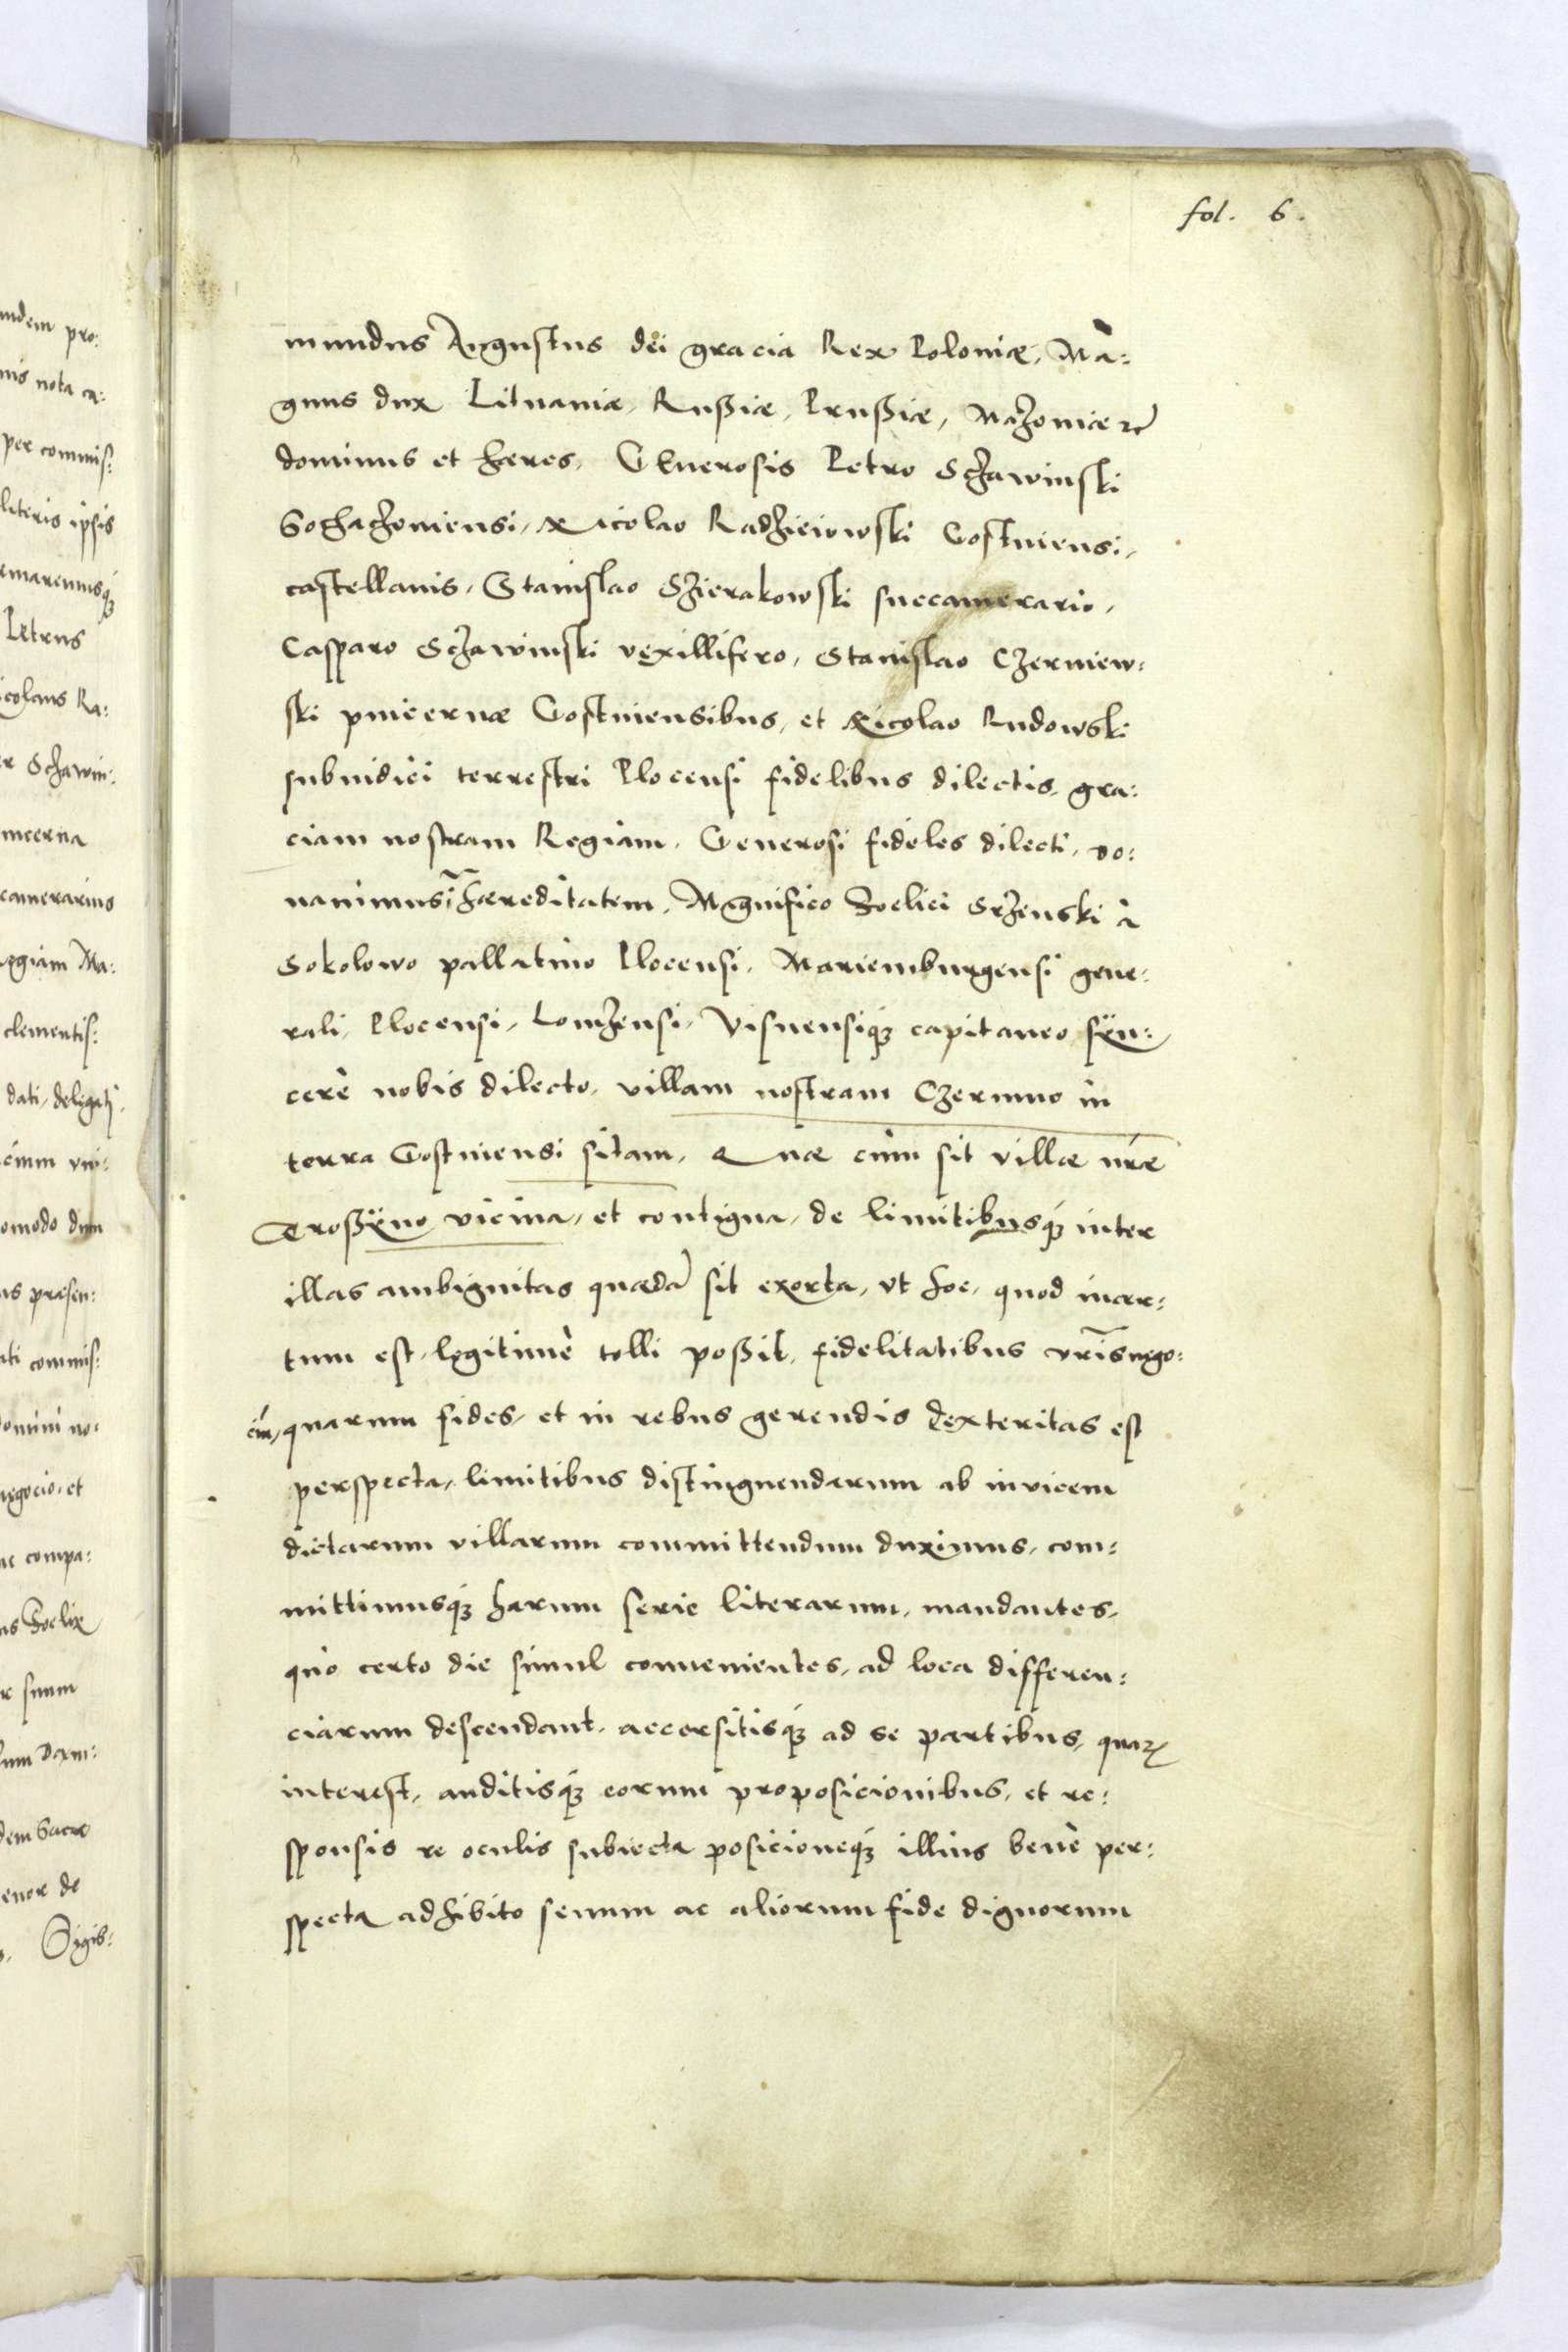 fol. 6.
mundus Augustus dei gracia Rex Poloniæ, Ma:
gnus dux Lituaniæ, Rußiæ, Prußiæ, Mazoniæ etc
dominus et hæres, GEnerosis Petro Schawinski
Sochachoniensi, Nicolao Radzieiowski Gostniensi,
castellanis, Stanislao Szierakowski succamerario,
Casparo Schawinski vexillifero, Stanislao Czerniew:
ski pincernæ Gostniensibus, et Nicolao Rudowski
subiudici terrestri Plocensi fidelibus dilectis, gra:
ciam nostram Regiam. Generosi fideles dilecti, do:
nauimus ī hæreditatem, Mgnifico Foelici Srzenski à
Sokolowo pallatino Plocensi, Mariemburgensi gene:
rali, Plocensi, Lomzensi, Visnensiq́ capitaneo sÿn:
cerè nobis dilecto, villam nostram Czermno in
terra Gostniensi sitam, Quæ cùm sit villæ nr̃æ
Troßÿno vicina, et contigua, de limitibusq́ inter
illas ambiguitas quædā sit exorta, vt hoc, quod incer:
tum est, legitimè tolli poßit, fidelitatibus vr̃is nego:
ciū, quarum fides, et in rebus gerendis dexteritas est
perspecta, limitibus distinguendarum ab inuicem
dictarum villarum committendum duximus, com:
mittimusq́ harum serie literarum, mandantes,
quò certo die simul conuenientes, ad loca differen:
ciarum descendant, accersitisq́ ad se partibus, quaꝝ
interest, auditisq́ eorum proposicionibus, et re:
sponsis re oculis subiecta posicioneq́ illius benè per:
specta adhibito senum ac aliorum fide dignorum
ndem pro:
nis nota ca:
per commis:
literis ipsis
rmaremusq́
Petrus
icolaus Ra:
r Schawin:
incerna
camerarius
egiam Ma:
clementis:
dati, delegati,
cium vni:
omodo dum
us præsen:
ati commis:
domini no:
negocio, et
ac compa:
us Foelix
e suum
dem Sacræ
enor de
Sigis: